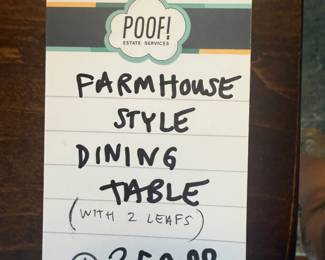 POOF!
ESTATE SERVICES
FARMHOUSE
STYLE
DINING
TABLE
(WITH 2 LEAFS)